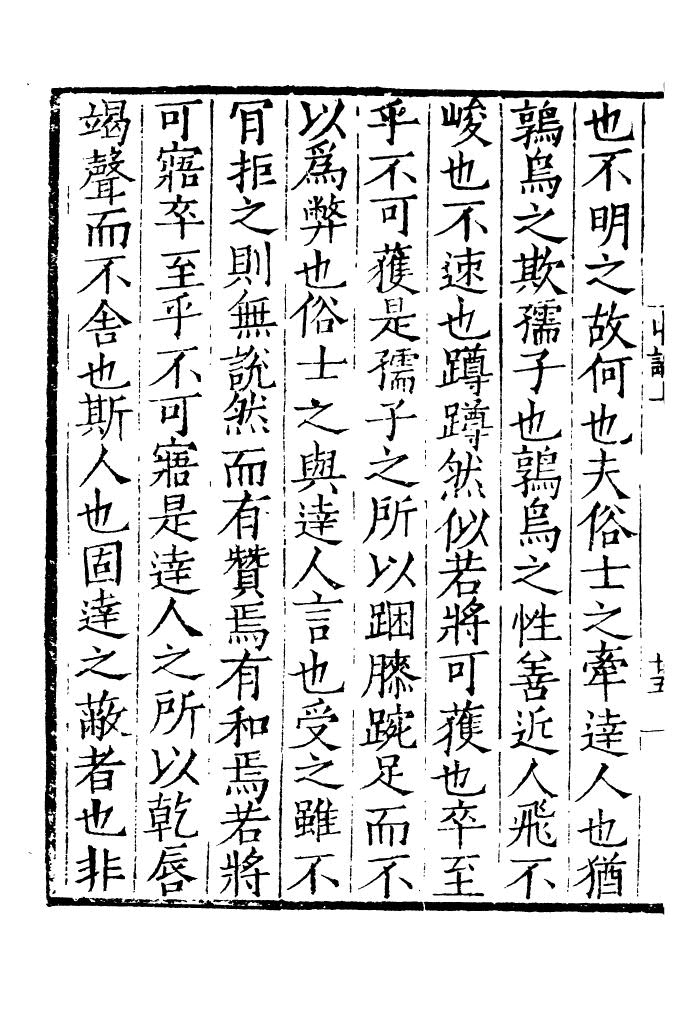 也不明之故何也夫俗士之牽達人也猶
鶉鳥之欺孺子也鶉鳥之性善近人飛不
峻也不速也蹲蹲然似若將可獲也卒至
乎不可獲是孺子之所以䠅膝踠足而不
以爲弊也俗士之與達人言也受之雖不
肎拒之則無說然而有贊焉有和焉若將
可寤卒至乎不可寤是達人之所以乾脣
竭聲而不舍也斯人也固達之蔽者也非